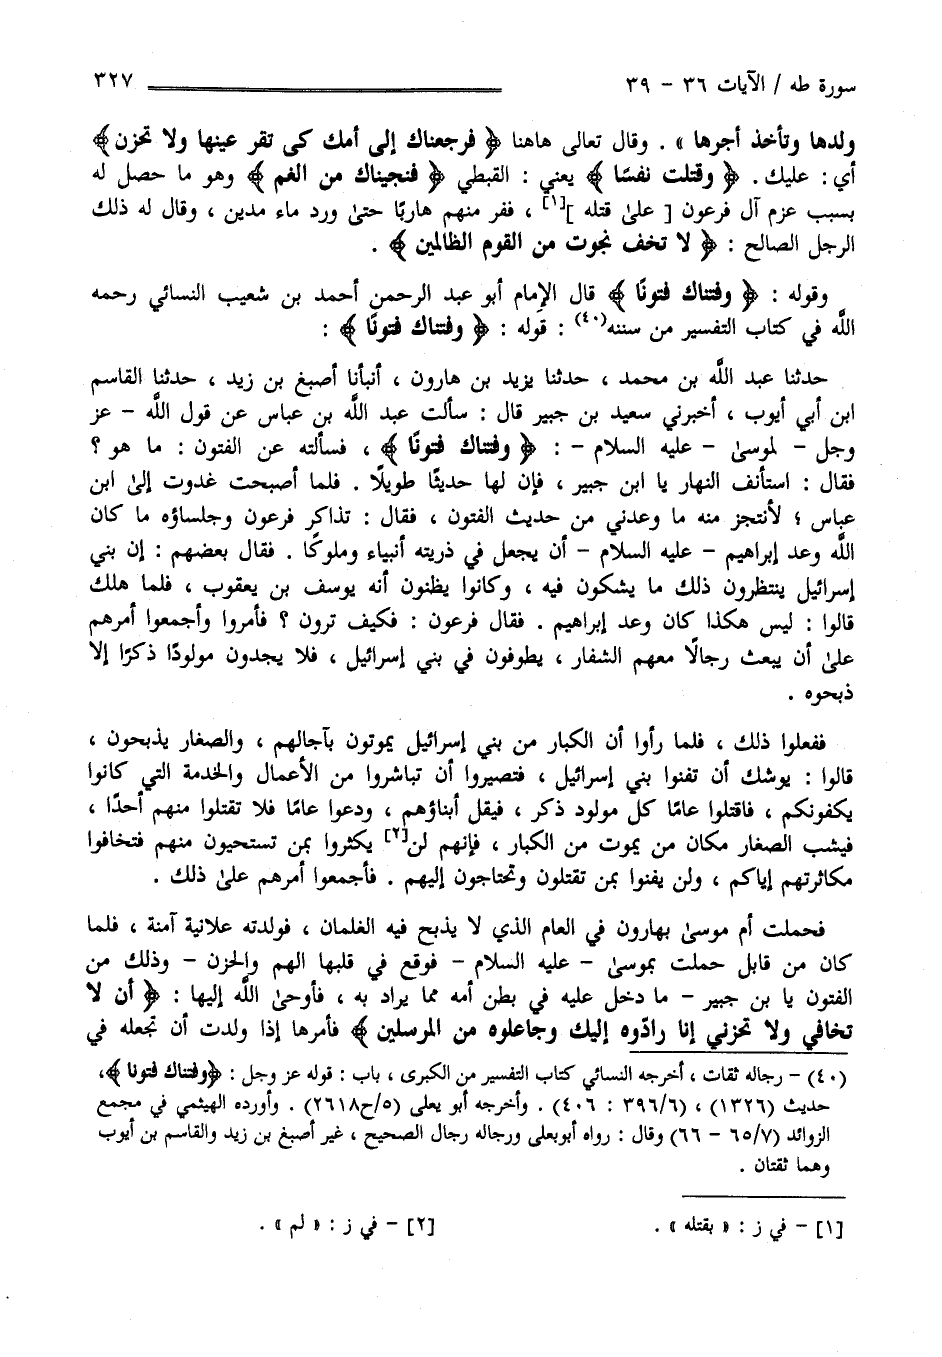 سورة طه / الآيات ٣٦ - ٣٩ ٣٢٧
ولدها وتأخذ أجرها » . وقال تعالى هاهنا ﴿ فرجعناك إلى أمك كى تقر عينها ولا تحزن﴾
أي : عليك . ﴿ وقتلت نفسًا ﴾ يعني : القبطي ﴿ فنجيناك من الغم ﴾ وهو ما حصل له
بسبب عزم آل فرعون [ على قتله ][١] ، ففر منهم هاربًا حتى ورد ماء مدين ، وقال له ذلك
الرجل الصالح : ﴿ لا تخف نجوت من القوم الظالمين ﴾ .
وقوله : ﴿ وفتناك فتونًا ﴾ قال الإمام أبو عبد الرحمن أحمد بن شعيب النسائي رحمه
اللَّه في كتاب التفسير من سننه(٤٠) : قوله : ﴿ وفتناك فتونًا ﴾ :
حدثنا عبد اللَّه بن محمد ، حدثنا يزيد بن هارون ، أنبأنا أصبغ بن زيد ، حدثنا القاسم
ابن أبي أيوب ، أخبرني سعيد بن جبير قال : سألت عبد اللَّه بن عباس عن قول اللَّه - عز
وجل - لموسى - عليه السلام - : ﴿ وفتناك فتونًا ﴾ ، فسألته عن الفتون : ما هو ؟
فقال : استأنف النهار يا ابن جبير ، فإن لها حديثًا طويلًا . فلما أصبحت غدوت إلى ابن
عباس ؛ لأنتجز منه ما وعدني من حديث الفتون ، فقال : تذاكر فرعون وجلساؤه ما كان
اللَّه وعد إبراهيم - عليه السلام - أن يجعل في ذريته أنبياء وملوكًا . فقال بعضهم : إن بني
إسرائيل ينتظرون ذلك ما يشكون فيه ، وكانوا يظنون أنه يوسف بن يعقوب ، فلما هلك
قالوا : ليس هكذا كان وعد إبراهيم . فقال فرعون : فكيف ترون ؟ فأمروا وأجمعوا أمرهم
على أن يبعث رجالًا معهم الشفار ، يطوفون في بني إسرائيل ، فلا يجدون مولودًا ذكرًا إلا
ذبحوه .
ففعلوا ذلك ، فلما رأوا أن الكبار من بني إسرائيل يموتون بآجالهم ، والصغار يذبحون ،
قالوا : يوشك أن تفنوا بني إسرائيل ، فتصيروا أن تباشروا من الأعمال والخدمة التي كانوا
يكفونكم ، فاقتلوا عامًا كل مولود ذكر ، فيقل أبناؤهم ، ودعوا عامًا فلا تقتلوا منهم أحدًا ،
فيشب الصغار مكان من يموت من الكبار ، فإنهم لن[٢] يكثروا بمن تستحيون منهم فتخافوا
مكاثرتهم إياكم ، ولن يفنوا بمن تقتلون وتحتاجون إليهم . فأجمعوا أمرهم على ذلك .
فحملت أم موسى بهارون في العام الذي لا يذبح فيه الغلمان ، فولدته علانية آمنة ، فلما
كان من قابل حملت بموسى - عليه السلام - فوقع في قلبها الهم والحزن - وذلك من
الفتون يا بن جبير - ما دخل عليه في بطن أمه مما يراد به ، فأوحى اللَّه إليها : ﴿ أن لا
تخافي ولا تحزني إنا رادّوه إليك وجاعلوه من المرسلين ﴾ فأمرها إذا ولدت أن تجعله في
(٤٠) - رجاله ثقات ، أخرجه النسائي كتاب التفسير من الكبرى ، باب : قوله عز وجل : ﴿وفتناك فتونا ﴾،
حديث (١٣٢٦) ، (٣٩٦/٦ : ٤٠٦) . وأخرجه أبو يعلى (٥/ح٢٦١٨) . وأورده الهيثمي في مجمع
الزوائد (٦٥/٧ - ٦٦) وقال : رواه أبويعلى ورجاله رجال الصحيح ، غير أصبغ بن زيد والقاسم بن أيوب
وهما ثقتان .
[١] - في ز : « بقتله » . [٢] - في ز : « لم » .